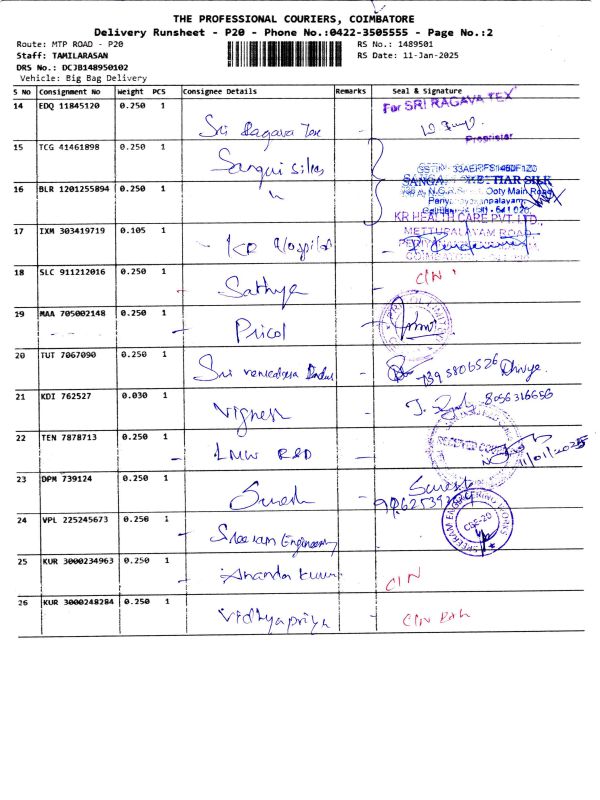 THE PROFESSIONAL COURIERS, COIMBATORE
Delivery Runsheet - P20 - Phone No.:0422-3505555 - Page No.:2
Route: MTP ROAD - P20 RS No.: 1489501
Staff: TAMILARASAN RS Date: 11-Jan-2025
DRS No.: DCJB148950102
Vehicle: Big Bag Delivery
S No Consignment No Weight PCS Consignee Details Remarks Seal & Signature
14 EDQ 11845120 0.250 1 For SRI RAGAVA TEX
Sri Ragava Tex -
Proprietor
15 TCG 41461898 0.250 1
Sangui Silks
GSTIN : 33AERFS1460F1ZD
16 BLR 1201255894 0.250 1
Ooty Main Road
KR HEALTH CARE PVT. LTD.,
17 IXM 303419719 0.105 1 METTUPALAYAM ROAD
- KR Hospital -
COIMBATORE
18 SLC 911212016 0.250 1 CIN
- Sathya -
19 MAA 705002148 0.250 1
- Pricol -
20 TUT 7067090 0.250 1
Sri -
21 KDI 762527 0.030 1 8056316656
Vignesh -
22 TEN 7878713 0.250 1 RECEIVED
- LMW R&D - 11/01/2025
23 DPM 739124 0.250 1 Suresh
- Suresh -
24 VPL 225245673 0.250 1 SREERAM ENGINEERING WORKS
CBE-20
- Sreeram Engineering -
25 KUR 3000234963 0.250 1
- Ananda Kumar - CIN
26 KUR 3000248284 0.250 1
- Vidhyapriya - CIN